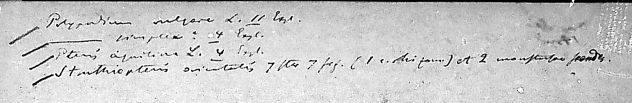 Polypodium vulgare L. 11 Expl.
——— simplex : 4 Expl.
Pteris aquilina L. 4 Expl.
Struthiopteris orientalis 7 ster 7 feg. (1 c. rhizom) et 2 fronder.